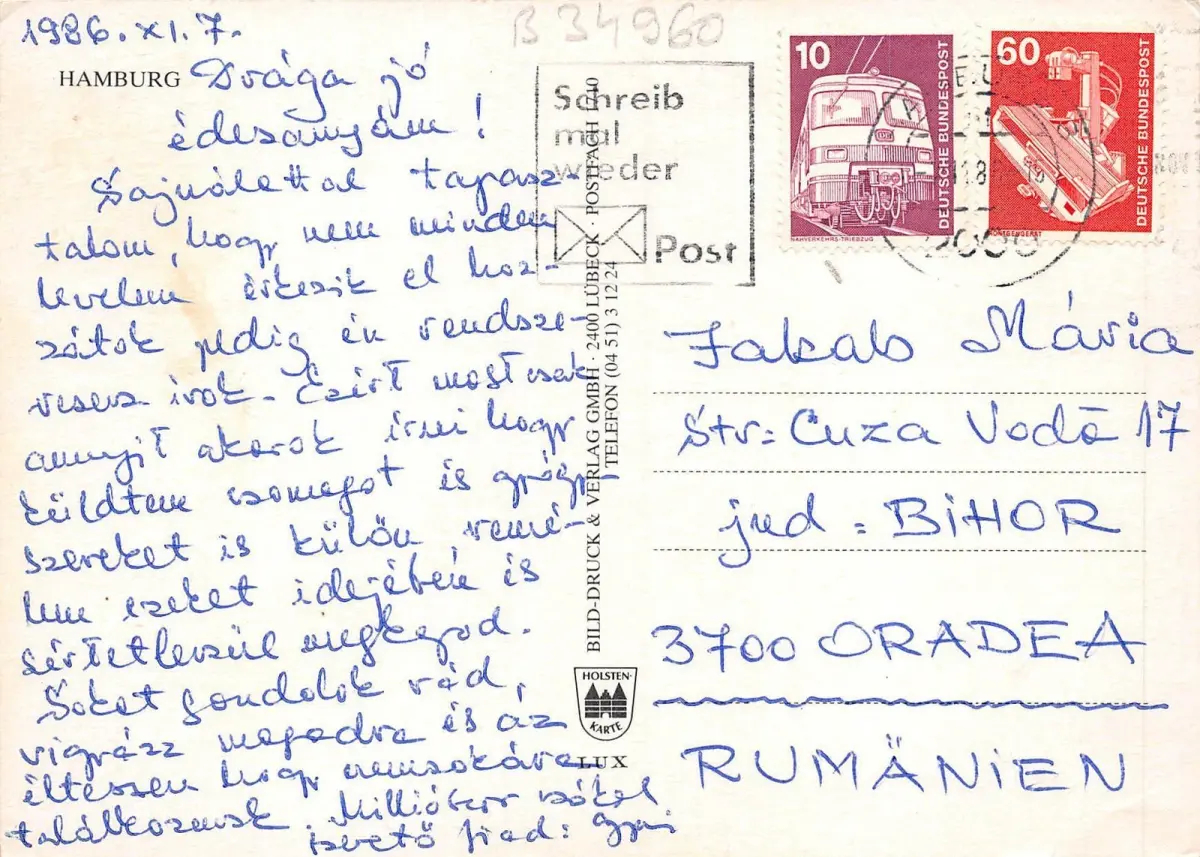 1986. XI. 7.
B 34960
HAMBURG
Drága jó
édesanyám!
Sajnálattal tapasz
talom, hogy nem minden
levelem érkezik el hoz-
zátok pedig én rendsze-
resen irok. Ezért most csak
annyit akarok irni hogy
küldtem csomagot is gyógy-
szereket is külön, remé-
lem ezeket idejében is
sértetlenül megkapod.
Sokat gondolok rád,
vigyázz magadra és az
éltessen hogy nemsokára
találkozunk. Milliószor csókol
szerető fiad:
Schreib
mal
wieder
Post
10
DEUTSCHE BUNDESPOST
NAHVERKEHRS-TRIEBZUG
60
DEUTSCHE BUNDESPOST
RÖNTGENGERÄT
2000
BILD-DRUCK & VERLAG GMBH · 2400 LÜBECK · POSTFACH 1710
TELEFON (04 51) 3 12 24
HOLSTEN-
KARTE
LUX
Jakab Mária
Str: Cuza Vodă 17
jud: BIHOR
3700 ORADEA
RUMÄNIEN